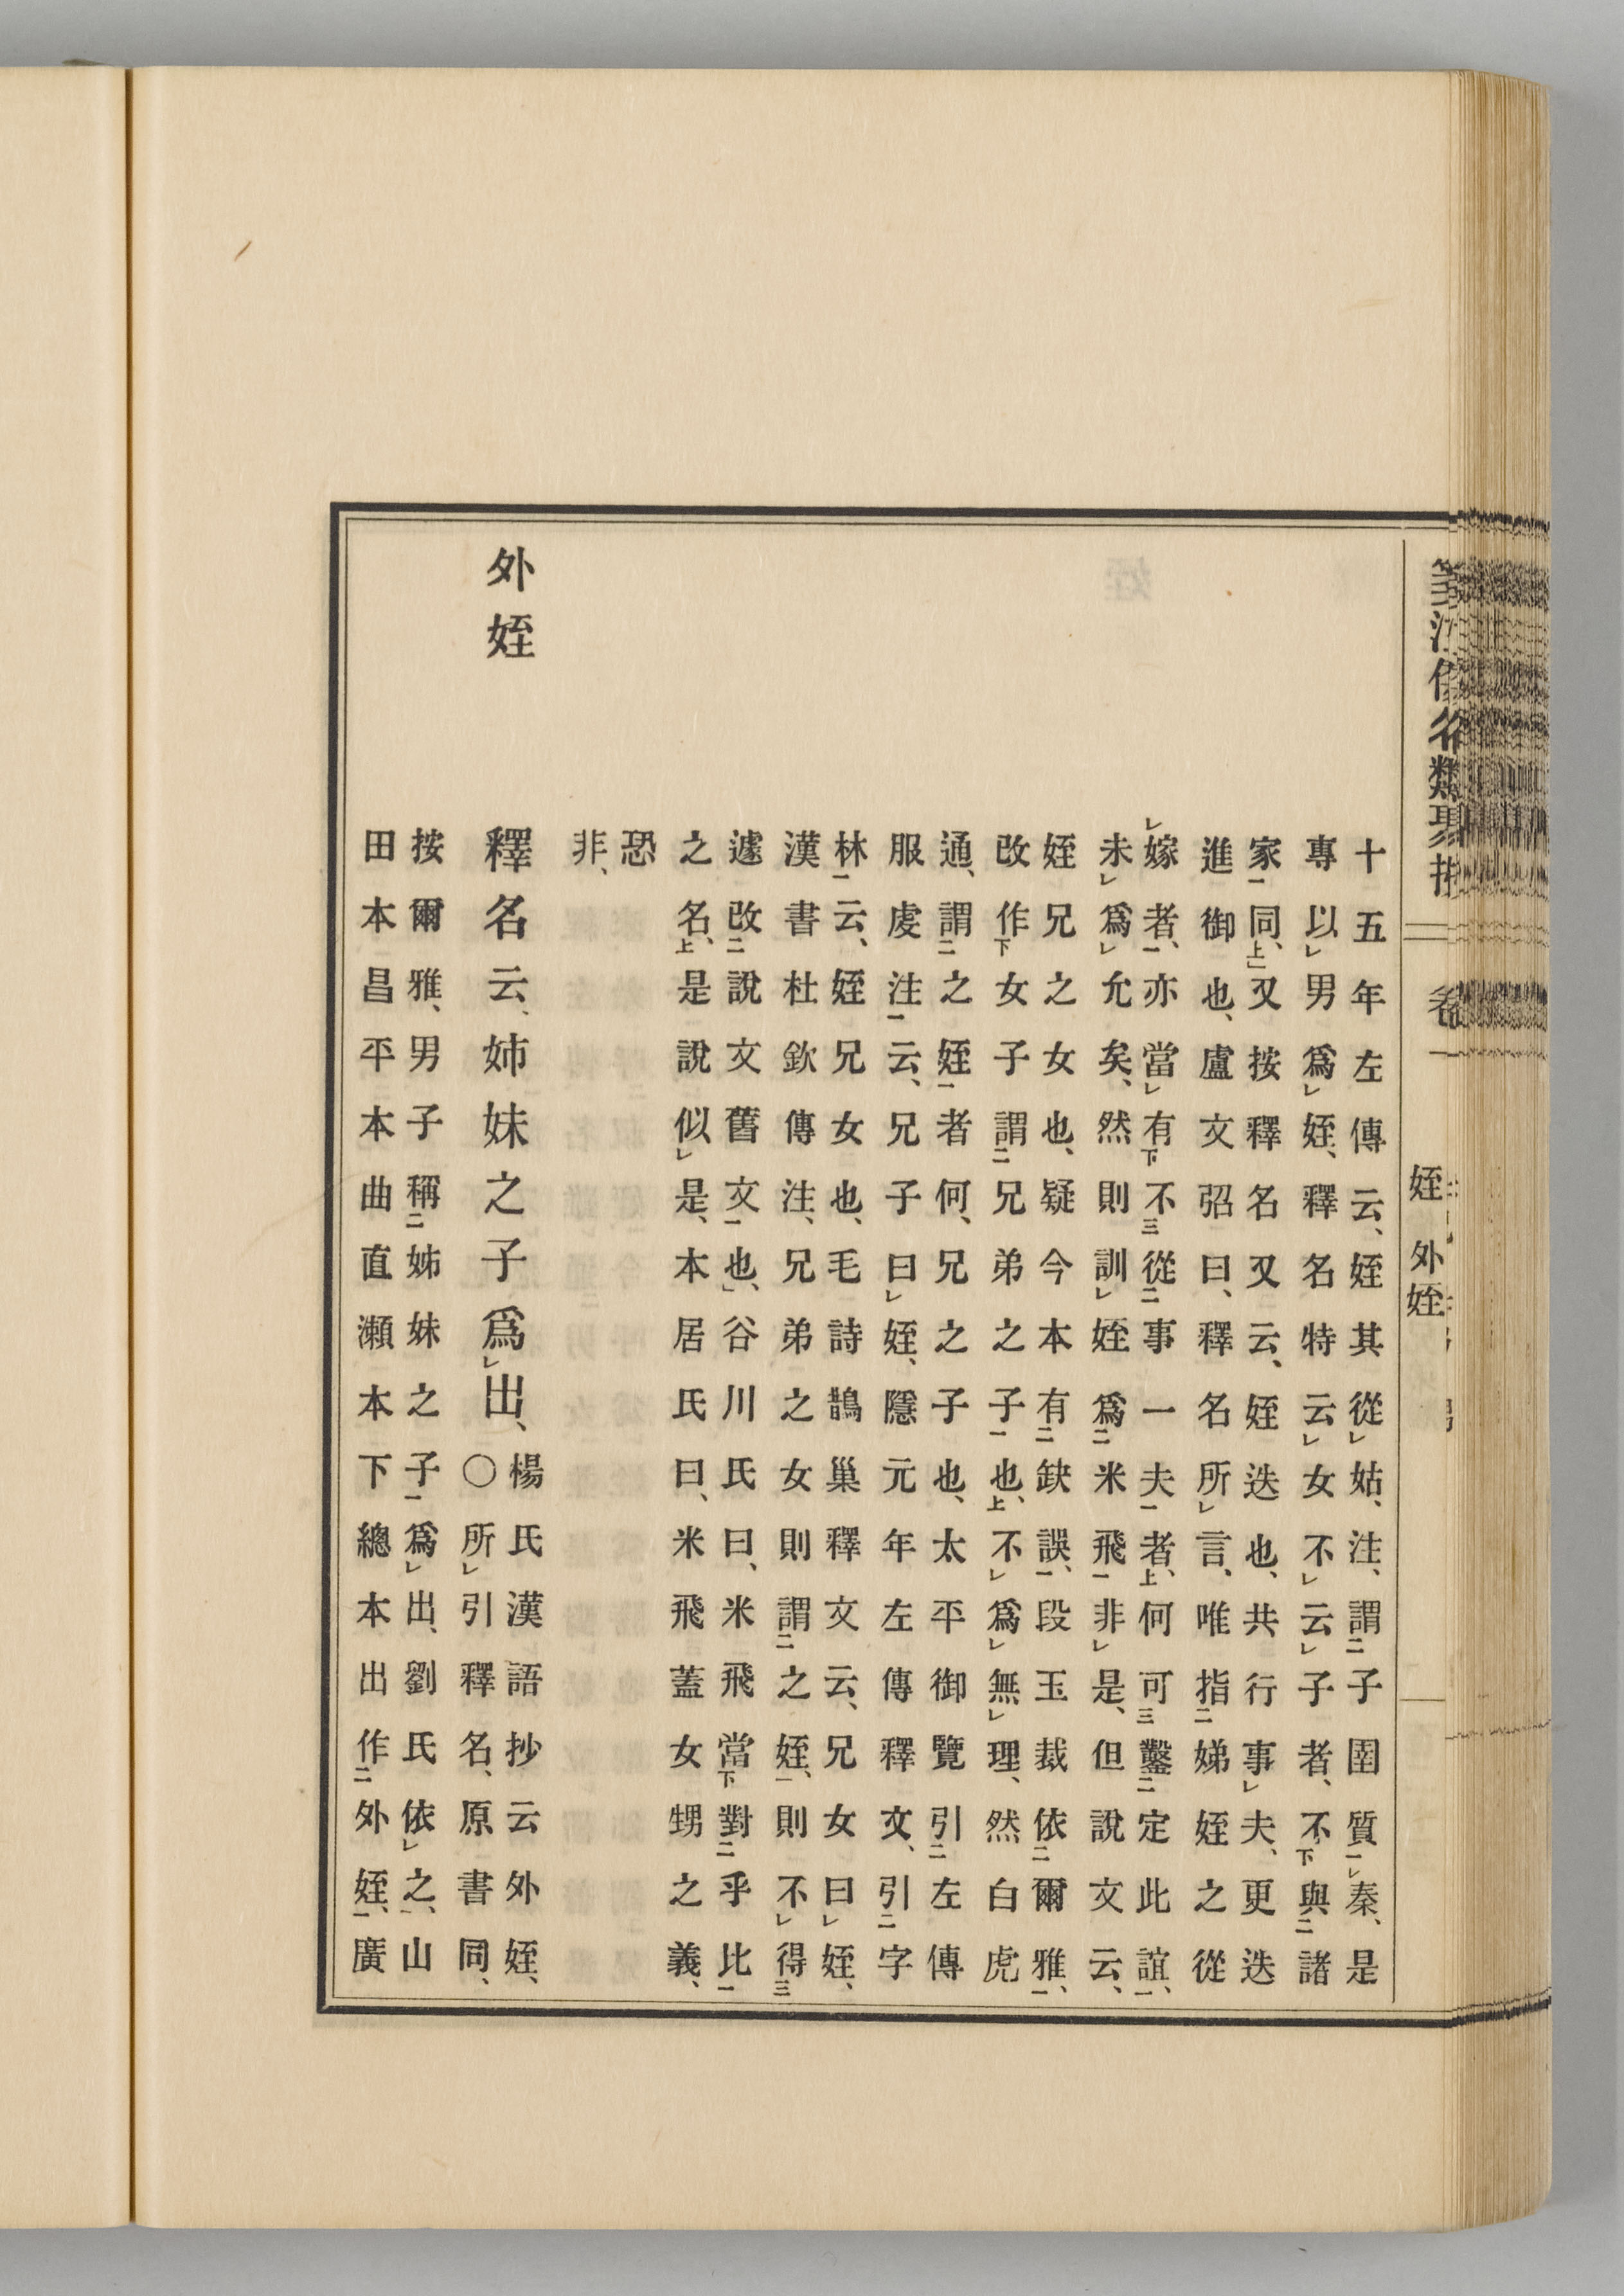 箋注倭名類聚抄 卷一 姪 外姪
十五年左傳云、姪其從㆑姑、注、謂㆓子圉質㆒㆑秦、是
專以㆑男爲㆑姪、釋名特云㆑女不㆑云㆑子者、不㆘與㆓諸
家㆒同㆖、」又按釋名又云、姪迭也、共行事㆑夫、更迭
進御也、盧文弨曰、釋名所㆑言、唯指㆓娣姪之從
㆑嫁者㆒、亦當㆑有㆘不㆔從㆓事一夫㆒者㆖、何可㆔鑿㆓定此誼㆒、
未㆑爲㆑允矣、然則訓㆑姪爲㆓米飛㆒非㆑是、但說文云、
姪兄之女也、疑今本有㆓缺誤㆒、段玉裁依㆓爾雅㆒、
改作㆘女子謂㆓兄弟之子㆒也㆖、不㆑爲㆑無㆑理、然白虎
通、謂㆓之姪㆒者何、兄之子也、太平御覽引㆓左傳
服虔注㆒云、兄子曰㆑姪、隱元年左傳釋文、引㆓字
林㆒云、姪兄女也、毛詩鵲巢釋文云、兄女曰㆑姪、
漢書杜欽傳注、兄弟之女則謂㆓之姪㆒、則不㆑得㆔
遽改㆓說文舊文㆒也、」谷川氏曰、米飛當㆘對㆓乎比㆒
之名㆖、是說似㆑是、本居氏曰、米飛蓋女甥之義、
恐
非、
外姪 釋名云、姉妹之子爲㆑出、楊氏漢語抄云外姪、
〇所㆑引釋名、原書同、
按爾雅、男子稱㆓姊妹之子㆒爲㆑出、劉氏依㆑之、山
田本昌平本曲直瀨本下總本出作㆓外姪㆒、廣